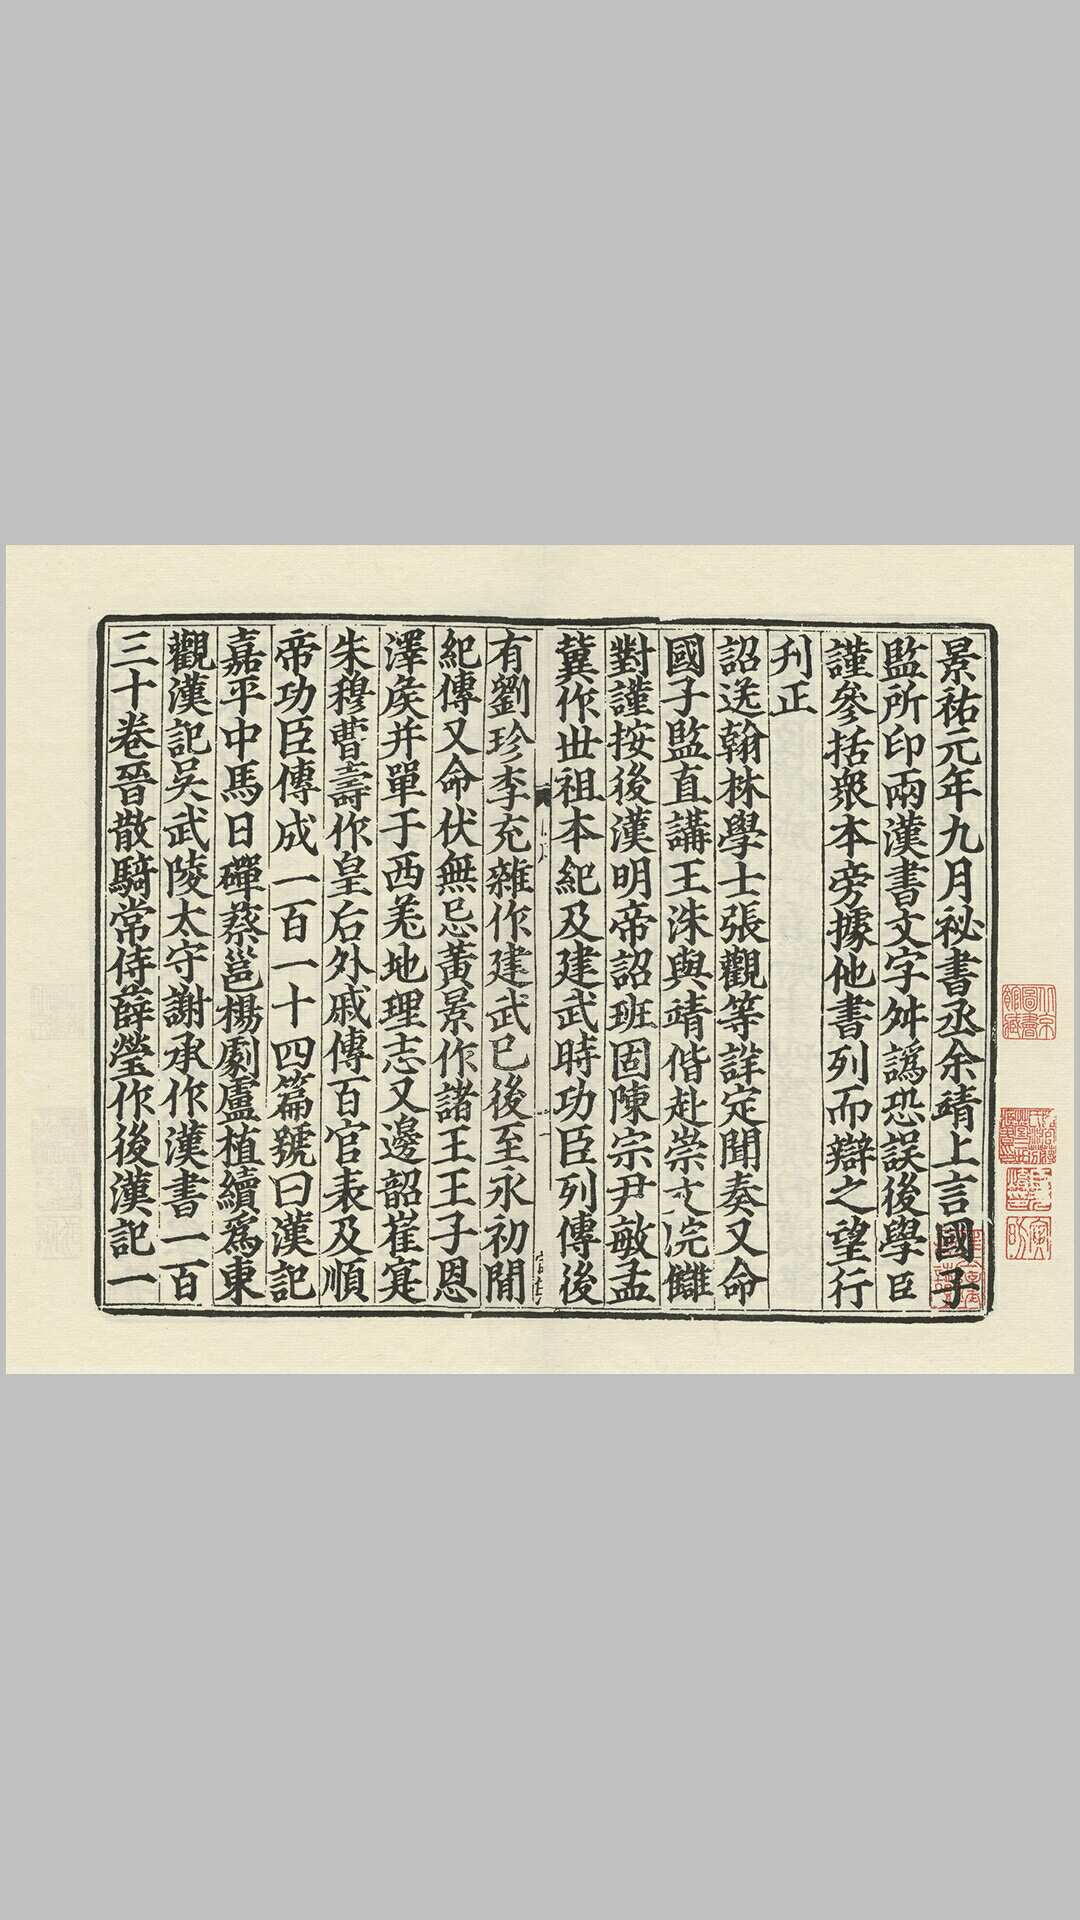 景祐元年九月祕書丞余靖上言國子
監所印兩漢書文字舛譌恐誤後學臣
謹參括衆本旁據他書列而辯之望行
刋正
詔送翰林學士張觀等詳定聞奏又命
國子監直講王洙與靖偕赴崇文院讎
對謹按後漢明帝詔班固陳宗尹敏孟
冀作世祖本紀及建武時功臣列傳後
有劉珍李充雜作建武巳後至永初閒
紀傳又命伏無忌黃景作諸王王子恩
澤矦并單于西羌地理志又邊韶崔寔
朱穆曹壽作皇后外戚傳百官表及順
帝功臣傳成一百一十四篇號曰漢記
嘉平中馬日磾蔡邕楊劇盧植續爲東
觀漢記吳武陵太守謝承作漢書一百
三十卷晉散騎常侍薛瑩作後漢記一